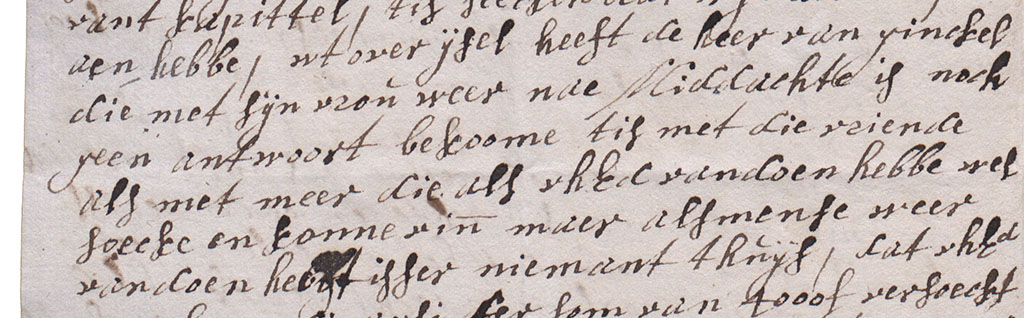 vant kapittel, tis
aen hebbe, wt over ijsel heeft de heer van ginckel
die met sijn vrou weer nae Middachte is noch
geen antwoort bekoome tis met die vriende
als met meer die als uhEd vandoen hebbe wel
soecke en konne vin̄ maer alsmense weer
vandoen heeft isser niemant thuijs, dat uhEd
som van 4000f versoeckt